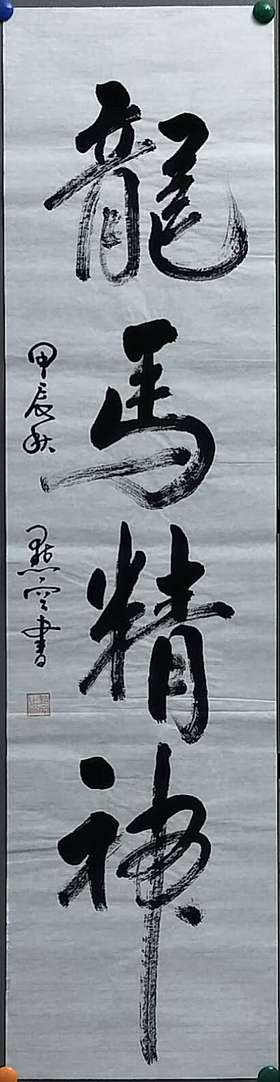 龍馬精神
甲辰秋 墨空書